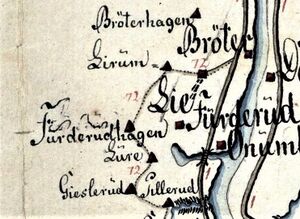 Bröterhagen
Bröter
Lirum
72
Lier
72
Fürderud
Fürderudhagen
Onum
Lüre
Gieslerud
Sillerud